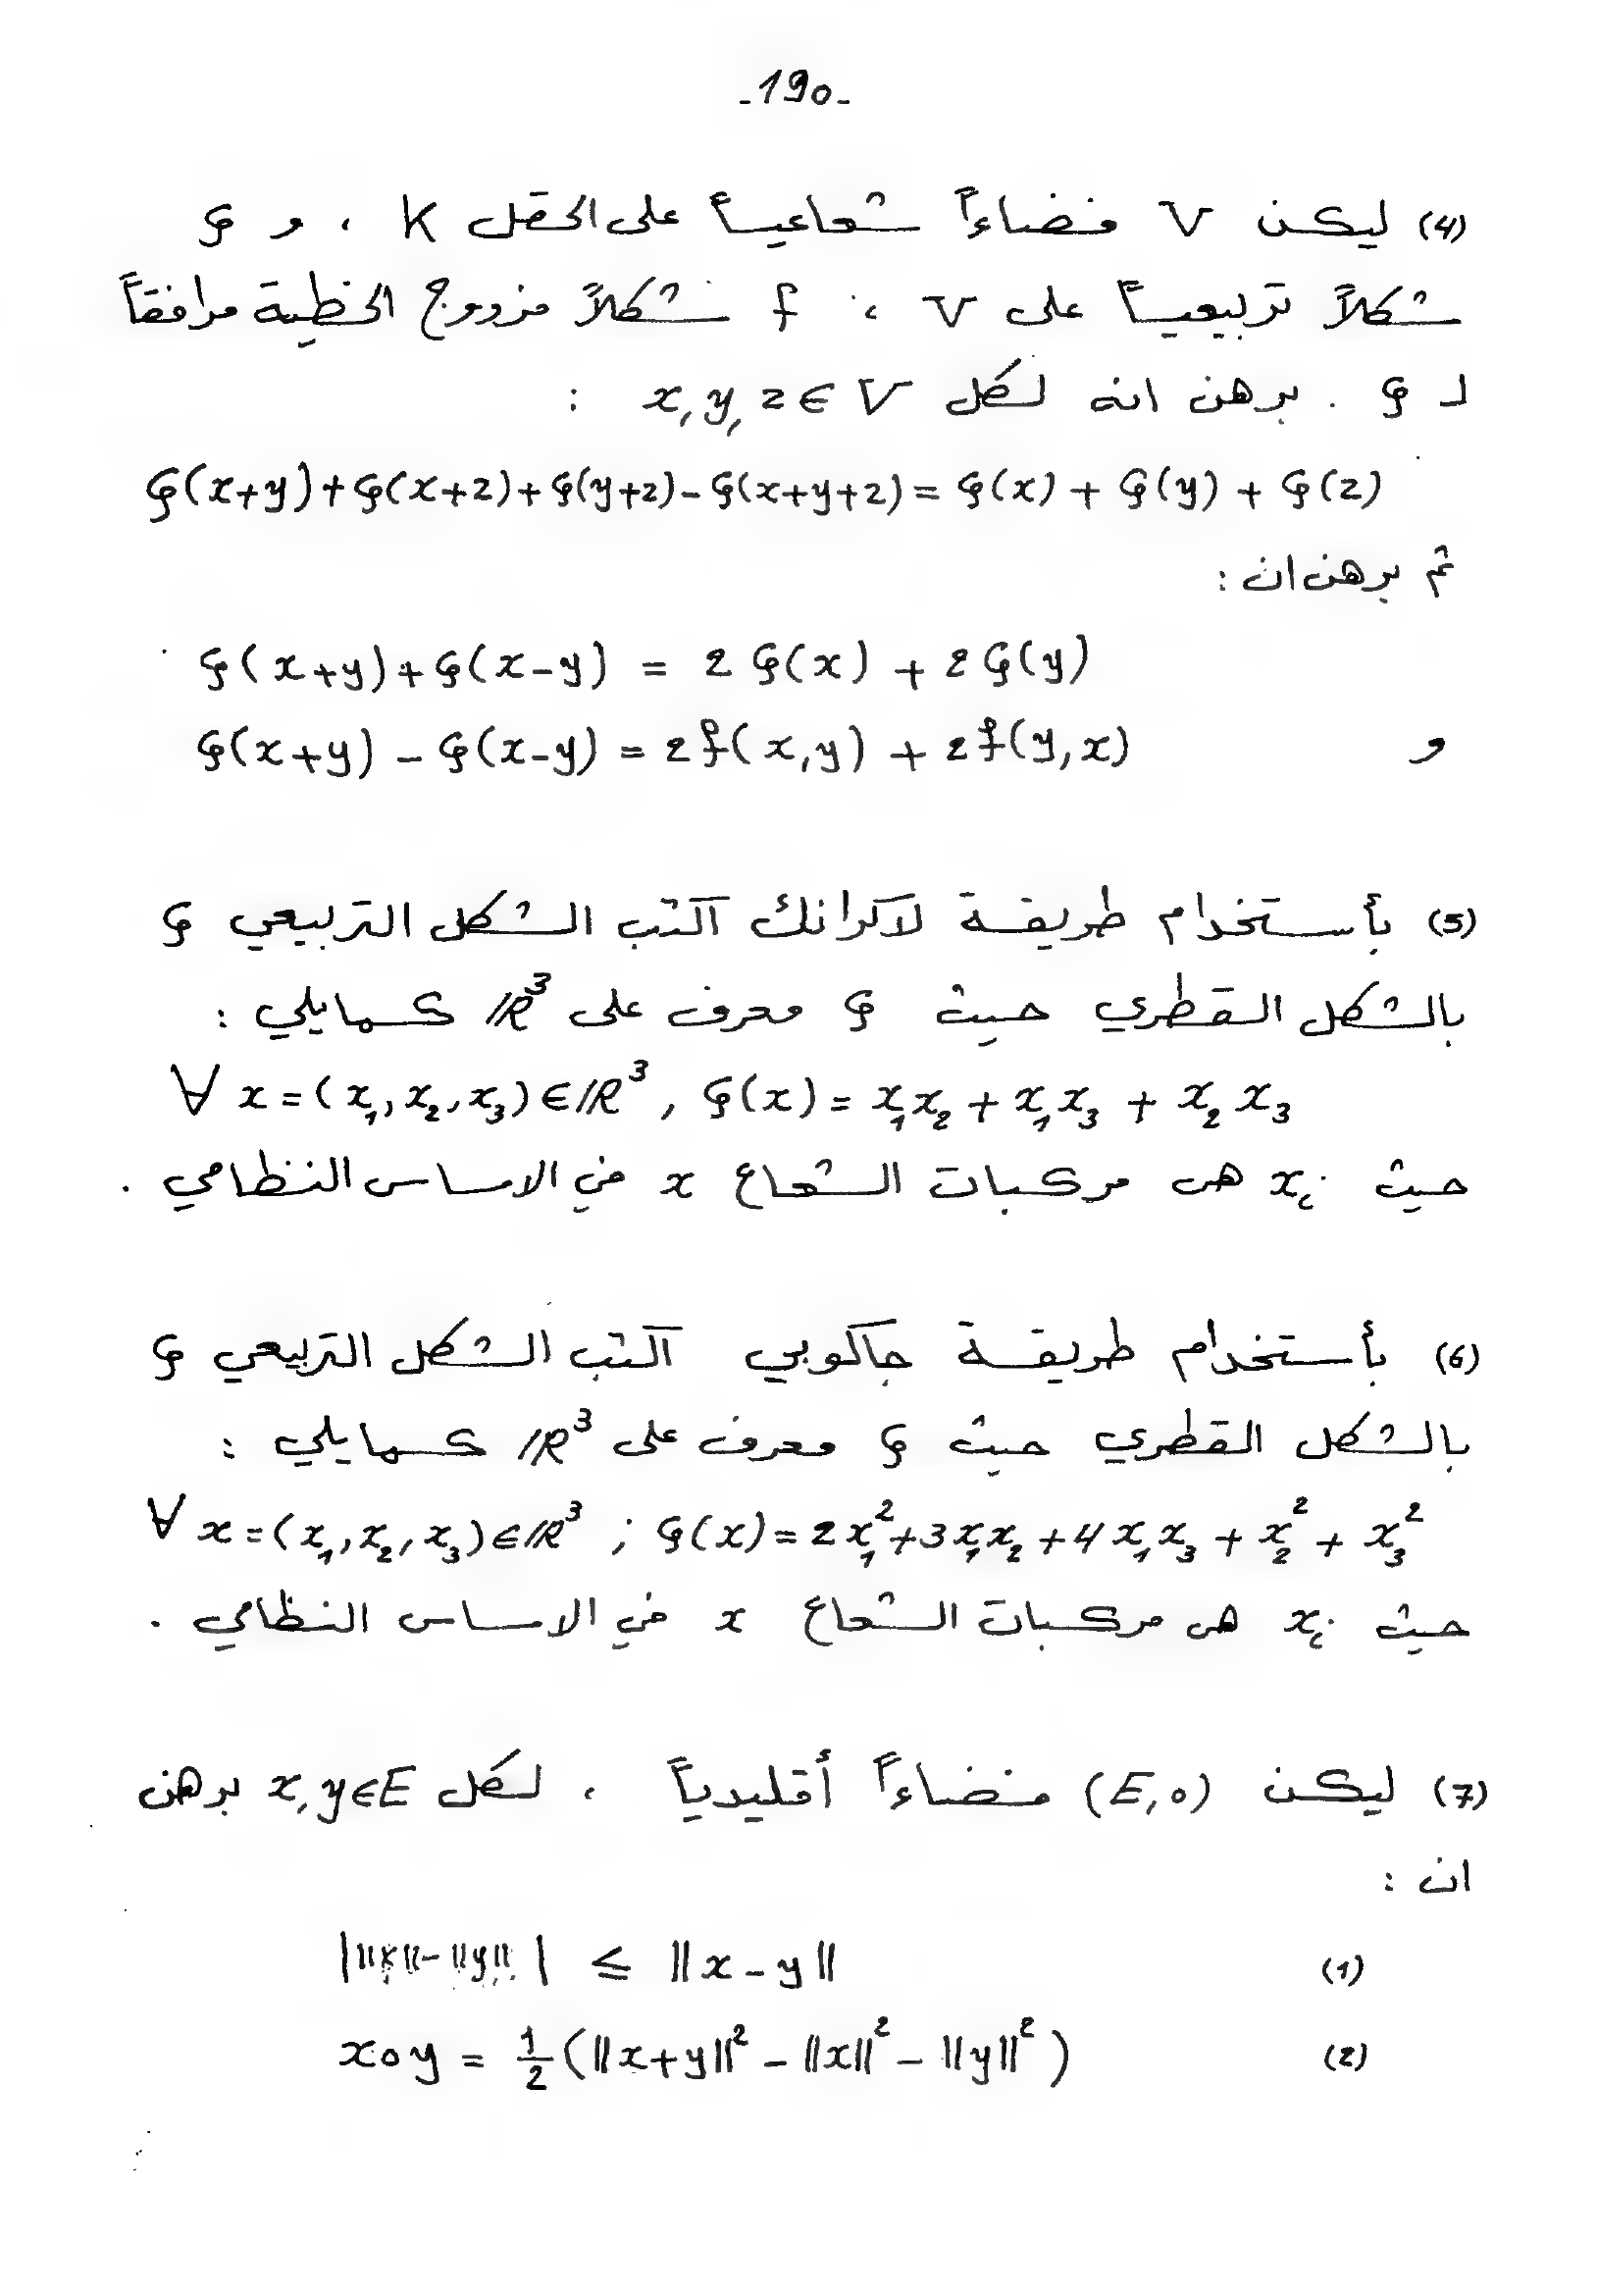 -190-
(4) ليكن V فضاءاً شعاعياً على الحقل K ، و φ
شكلاً تربيعياً على V ، f شكلاً مزدوج الخطية مرافقاً
لـ φ . برهن انه لكل x, y, z ∈ V :
φ(x+y)+φ(x+z)+φ(y+z)-φ(x+y+z) = φ(x) + φ(y) + φ(z)
ثم برهن ان :
φ(x+y)+φ(x-y) = 2φ(x) + 2φ(y)
و φ(x+y) - φ(x-y) = 2f(x,y) + 2f(y,x)
(5) بأستخدام طريقة لاكرانك اكتب الشكل التربيعي φ
بالشكل القطري حيث φ معرف على ℝ³ كمايلي :
∀ x = (x₁, x₂, x₃) ∈ ℝ³ , φ(x) = x₁x₂ + x₁x₃ + x₂x₃
حيث xᵢ هي مركبات الشعاع x في الاساس النظامي .
(6) بأستخدام طريقة جاكوبي اكتب الشكل التربيعي φ
بالشكل القطري حيث φ معرف على ℝ³ كمايلي :
∀ x = (x₁, x₂, x₃) ∈ ℝ³ ; φ(x) = 2x₁² + 3x₁x₂ + 4x₁x₃ + x₂² + x₃²
حيث xᵢ هي مركبات الشعاع x في الاساس النظامي .
(7) ليكن (E, ∘) فضاءاً أقليدياً ، لكل x, y ∈ E برهن
ان :
(1) | ‖x‖ - ‖y‖ | ≤ ‖x - y‖
(2) x∘y = ½ (‖x+y‖² - ‖x‖² - ‖y‖²)